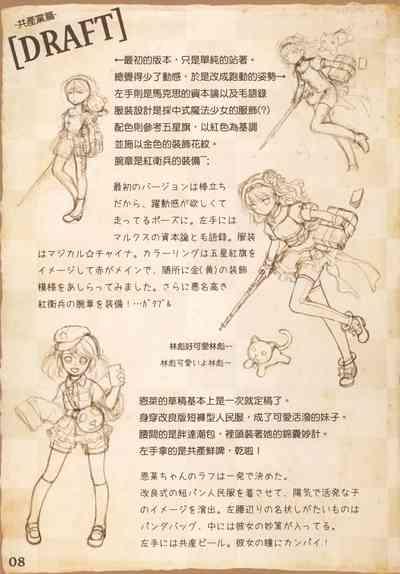 -共產黨篇-
[DRAFT]
←最初的版本,只是單純的站著。
總覺得少了動感,於是改成跑動的姿勢→
左手則是馬克思的資本論以及毛語錄
服裝設計是採中式魔法少女的服飾(?)
配色則參考五星旗,以紅色為基調
並施以金色的裝飾花紋。
腕章是紅衛兵的裝備ˊˇˋ;
最初のバージョンは棒立ち
だから、躍動感が欲しくて
走ってるポーズに。左手には
マルクスの資本論とも語録。服装
はマジカル☆チャイナ。カラーリングは五星紅旗を
イメージして赤がメインで、随所に金(黄)の装飾
模様をあしらってみました。さらに悪名高き
紅衛兵の腕章を装備!…ガクブル
林彪好可愛林彪~
林彪可愛いよ林彪~
恩萊的草稿基本上是一次就定稿了。
身穿改良版短褲型人民服,成了可愛活潑的妹子。
腰間的是胖達潮包,裡頭裝著她的錦囊妙計。
左手拿的是共產鮮啤,乾啦!
恩萊ちゃんのラフは一発で決めた。
改良式の短パン人民服を着させて、陽気で活発な子
のイメージを演出。左腰辺りの名状しがたいものは
パンダバッグ、中には彼女の妙策が入ってる。
左手には共産ビール。彼女の瞳にカンパイ!
08